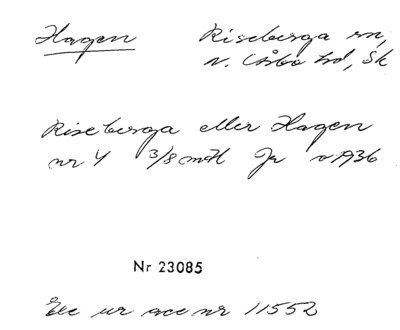 Hagen Riseberga sn,
N. Åsbo hd, Sk
Riseberga eller Hagen
nr 4 3/8 mtl Jr v 1936
Nr 23085
Exc ur acc nr 11552